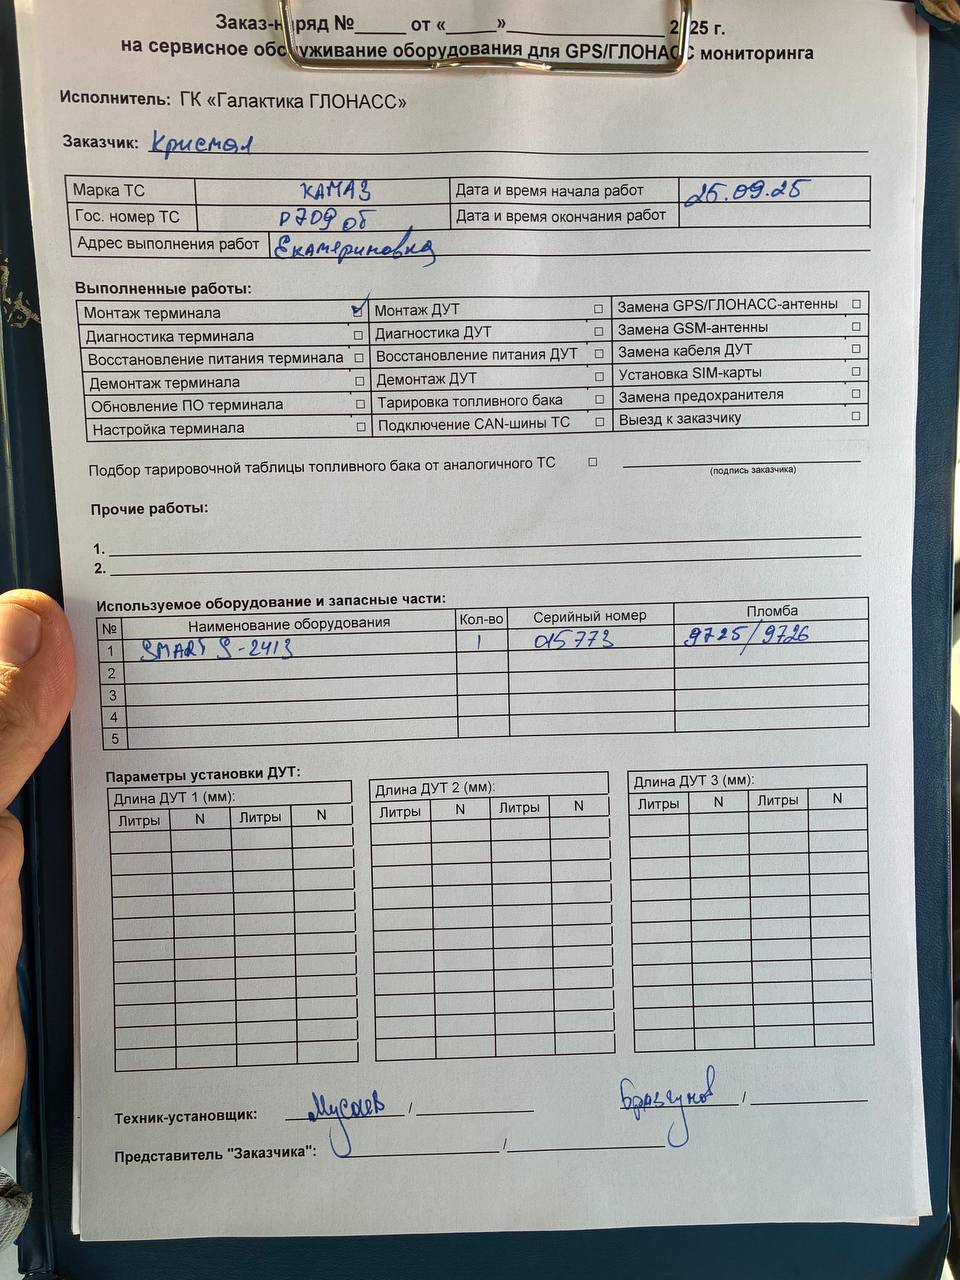 Заказ-наряд №_____ от «_____»_______________ 2025 г.
на сервисное обслуживание оборудования для GPS/ГЛОНАСС мониторинга
Исполнитель: ГК «Галактика ГЛОНАСС»
Заказчик: Кристал
Марка ТС КАМАЗ Дата и время начала работ 25.09.25
Гос. номер ТС Р709 об Дата и время окончания работ
Адрес выполнения работ Екатериновка
Выполненные работы:
Монтаж терминала ☑ Монтаж ДУТ □ Замена GPS/ГЛОНАСС-антенны □
Диагностика терминала □ Диагностика ДУТ □ Замена GSM-антенны □
Восстановление питания терминала □ Восстановление питания ДУТ □ Замена кабеля ДУТ □
Демонтаж терминала □ Демонтаж ДУТ □ Установка SIM-карты □
Обновление ПО терминала □ Тарировка топливного бака □ Замена предохранителя □
Настройка терминала □ Подключение CAN-шины ТС □ Выезд к заказчику □
Подбор тарировочной таблицы топливного бака от аналогичного ТС □
(подпись заказчика)
Прочие работы:
1.
2.
Используемое оборудование и запасные части:
№ Наименование оборудования Кол-во Серийный номер Пломба
1 SMART S-2413 1 015773 9725/9726
2
3
4
5
Параметры установки ДУТ:
Длина ДУТ 1 (мм): Длина ДУТ 2 (мм): Длина ДУТ 3 (мм):
Литры N Литры N Литры N Литры N Литры N Литры N
Техник-установщик: Мусаев / Бразгунов /
Представитель "Заказчика": /